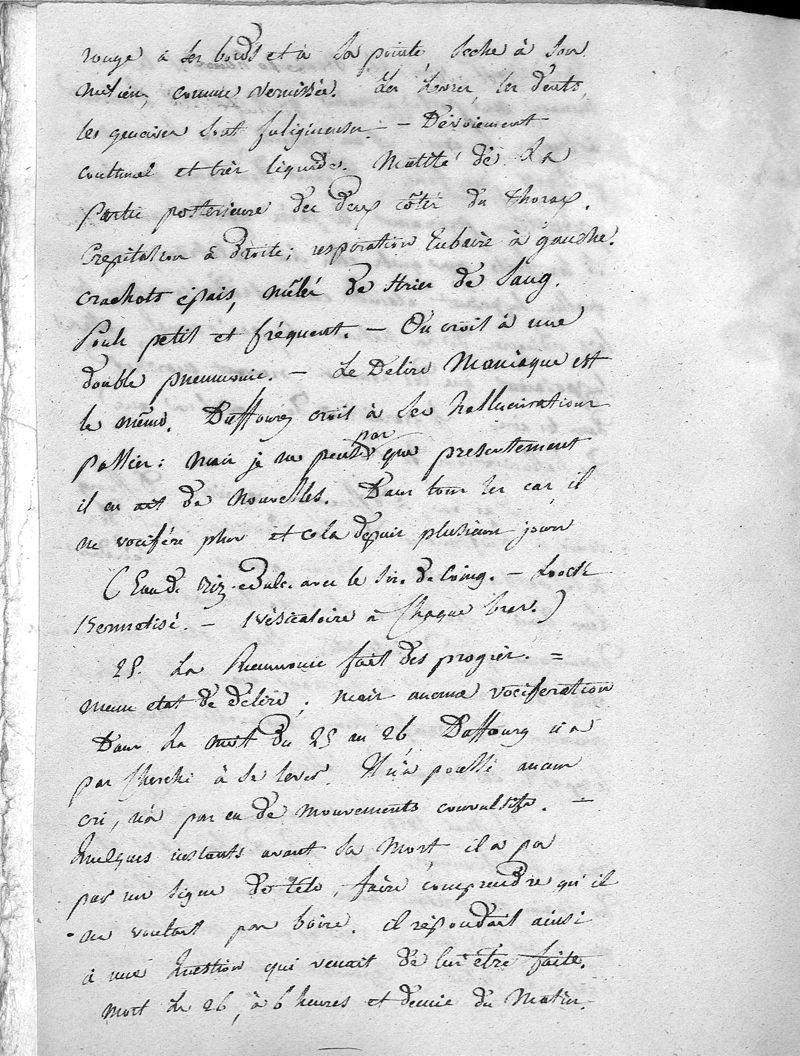 rouge à ses bords et à sa pointe seche à son
milieu, comme vernissée. Les Levres, les dents,
les gencives sont fuligineuses. — Dévoiement
continuel et très liquide. Matité de la
Partie posterieure des deux côtés du Thorax.
Crepitation à droite; respiration tubaire à gauche.
crachats épais, mêlés de stries de sang.
Pouls petit et fréquent. — On croit à une
double pneumonie. — Le Delire Maniaque est
le même. Daffourg croit à ses hallucinations
passées: mais je ne peux pas que presentement
il en ait de nouvelles. Dans tous les cas, il
ne vocifére plus et cela depuis plusieurs jours
(Eau de riz edulc. avec le sir. de Coing. — Looch
Kermetisé. — 1 Vésicatoire à Chaque bras.)
25. La Pneumonie fait des progrès. =
meme etat de délire; mais aucune vociferation
Dans la nuit du 25 au 26 Daffourg n'a
pas cherché à se lever. Il n'a poussé aucun
cri, n'a pas eu de mouvements convulsifs. —
Quelques instants avant sa mort, il a pu
par un signe de tête, faire comprendre qu'il
ne voulait pas boire. il répondait ainsi
à une Question qui venait de lui être faite.
Mort le 26, à 6 heures et demie du Matin.